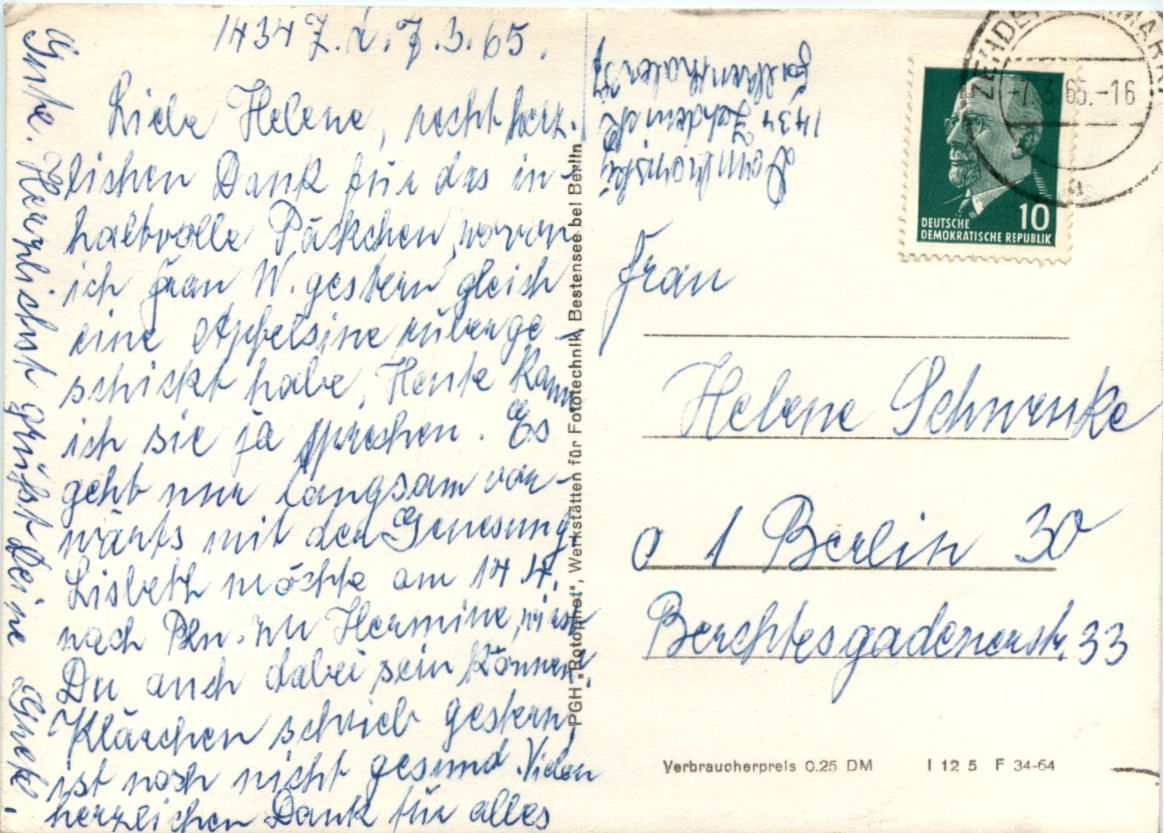 1434 Z. d. 7.3.65.
Liebe Helene, recht herz-
lichen Dank für das in-
haltvolle Päckchen, wovon
ich Frau W. gestern gleich
eine Apfelsine rüberge-
schickt habe. Heute kann
ich sie ja sprechen. Es
geht nur langsam vor-
wärts mit der Genesung.
Lisbeth möchte am 14.4.
nach Bln. zu Hermine, wirst
Du auch dabei sein können.
Klärchen schrieb gestern,
ist noch nicht gesund. Vielen
herzlichen Dank für alles
Gute. Herzlichst grüßt Deine Gretl.
1434 Zehdenick
PGH „Rotophot", Werkstätten für Fototechnik, Bestensee bei Berlin
-7.3.65.-16
a
10
DEUTSCHE
DEMOKRATISCHE REPUBLIK
Frau
Helene Schwenke
1 Berlin 30
Berchtesgadenerstr. 33
Verbraucherpreis 0.25 DM I 12 5 F 34-64